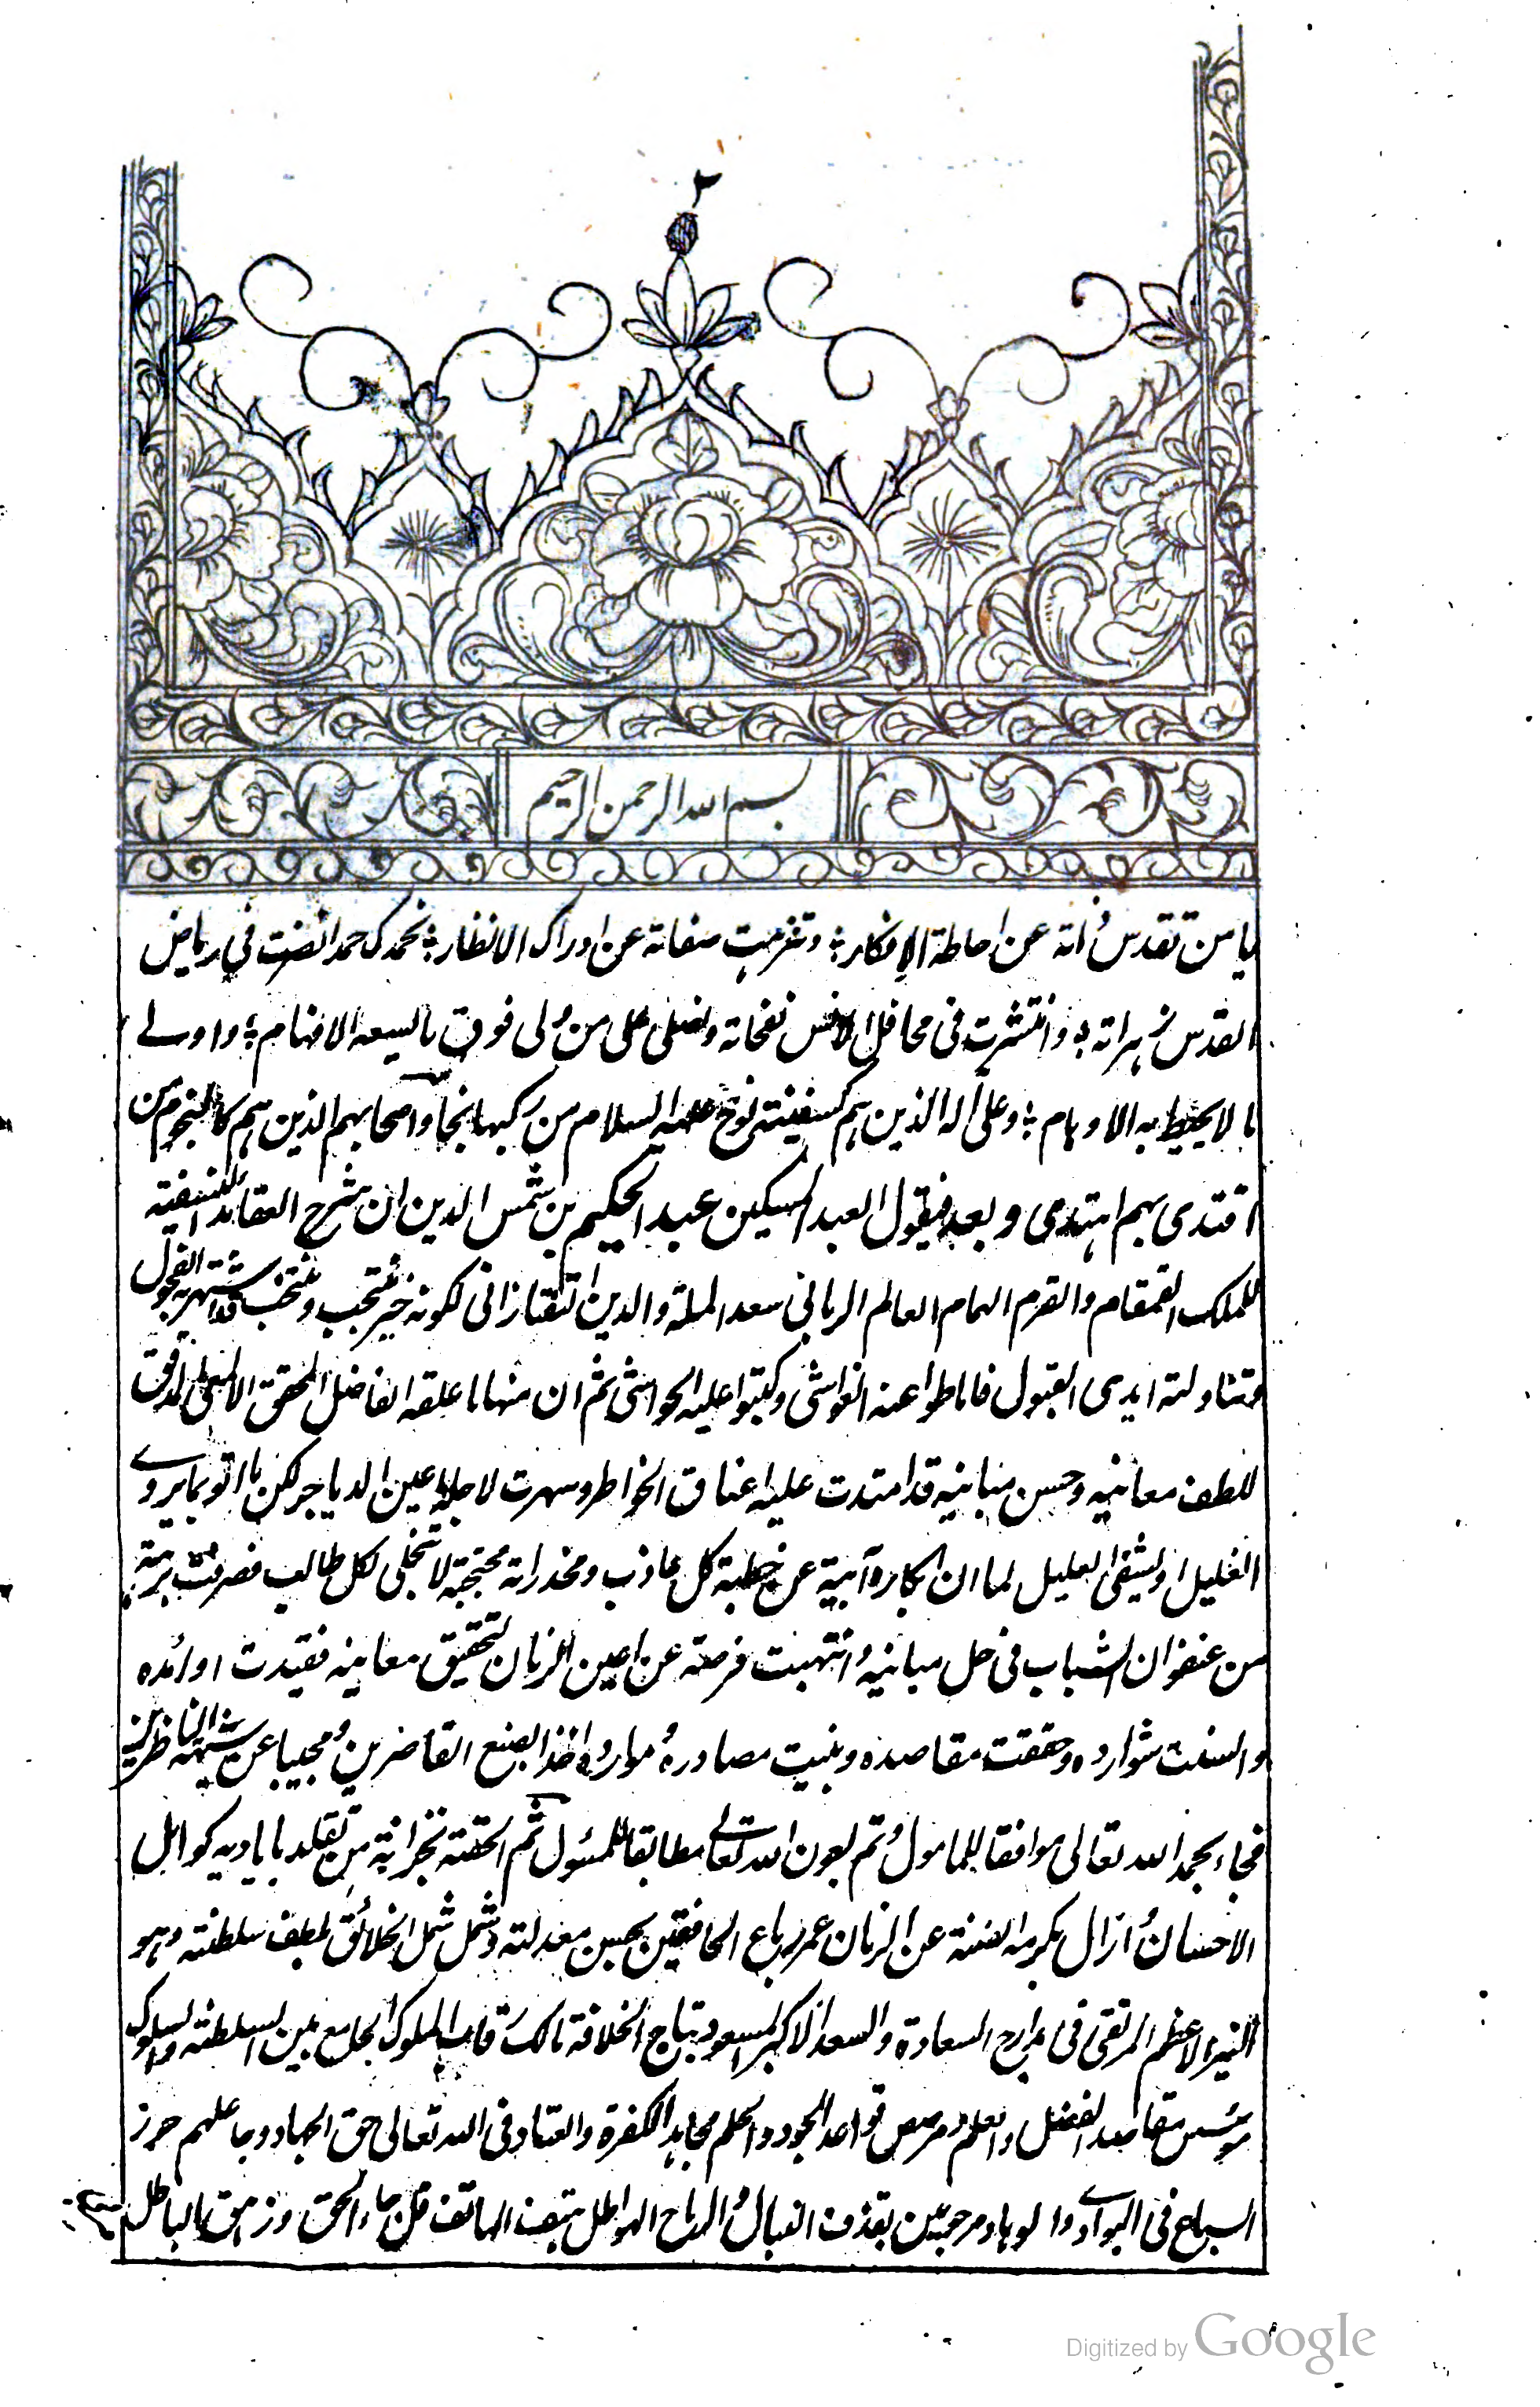 ٢
بسم الله الرحمن الرحيم
يا من تقدس ذاته عن احاطة الافكار ؛ وتنزهت صفاته عن ادراك الانظار ؛ نحمدك حمدا نضرت في رياض
القدس زهراته ؛ وانتشرت في محافل الانس نفحاته ونصلي على من دلى فوق ما ليسعه الافهام ؛ واولے
ما لا يحيط به الاوهام ؛ وعلى اله الذين هم كسفينتي نوح عليه السلام من ركبها نجا واصحابهم الذين هم كالنجوم من
اقتدى بهم اهتدى وبعد فيقول العبد المسكين عبد الحكيم بن شمس الدين ان شرح العقائد النسفية
للملك القمقام والقرم الهمام العالم الرباني سعد الملة والدين التفتازاني لكونه خير منتجب ومنتخب قد اشتهر به الفحول
وتناولته ايدى القبول فاماطوا عنه الغواشى وكتبوا عليه الحواشى ثم ان منها ما علقه الفاضل المحقق الالمعى المدقق
للطف معانيه وحسن مبانيه قد امتدت عليه اعناق الخواطر وسهرت لاجله اعين الدياجر لكن ما اتو بما يروے
الغليل او يشفى العليل لما ان ابكاره آبية عن خطبة كل عاذب ومخدراته محتجبة لا تتجلى لكل طالب فصرفت برهة
من عنفوان الشباب في حل مبانيه وانتهبت فرصة عن اعين الزمان لتحقيق معانيه فقيدت اوائده
والسنت شوارده وحققت مقاصده وبنيت مصادره وموارده اخذا بصنع القاصرين ومجيبا عن شبهة الناظرين
فجاء بحمد الله تعالى موافقا للمامول وتم بعون الله تعالے مطابقا للمسئول ثم الحقته بخزانة من تقلد باياديه كواهل
الاحسان وازال بكرمه الضنة عن الزمان عمر رباع الخافقين بحسن معدلته وشمل شمل الخلائق لطف سلطنته وهو
النير الاعظم المرتقى في مدارج السعادة والسعد الاكبر المسعود بتاج الخلافة مالك رقاب الملوك الجامع بين السلطنة والسلوك
مؤسس مقاصد الفضل والعلم ومرصص قواعد الجود والحلم مجاهد الكفرة والعتاد فى الله تعالى حق الجهاد وجاعلهم حرز
السباع في البوادے والوهاد مرحبين بقذف النبال والرماح الهواطل بتعت الهاتف قل جاء الحق وزهق الباطل